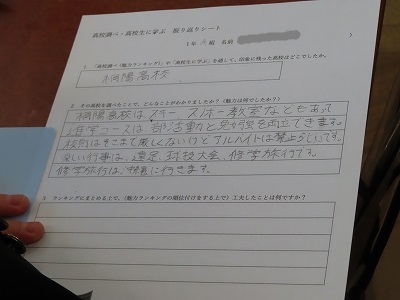 高校調べ・高校生に学ぶ 振り返りシート
1年 組 名前
1 「高校調べ（魅力ランキング）」や「高校生に学ぶ」を通して、印象に残った高校はどこでしたか。
桐陽高校
2 その高校を調べたことで、どんなことがわかりましたか？（魅力は何でしたか？）
桐陽高校は スキー スノー教室などもあって
進学コースは 部活動と勉強を両立できます。
校則はそこまで厳しくないけどアルバイトは禁止らしいです。
楽しい行事は、遠足、球技大会、修学旅行です。
修学旅行は に行きます。
3 ランキングにまとめる上で、（魅力ランキングの順位付けをする上で）工夫したことは何ですか？